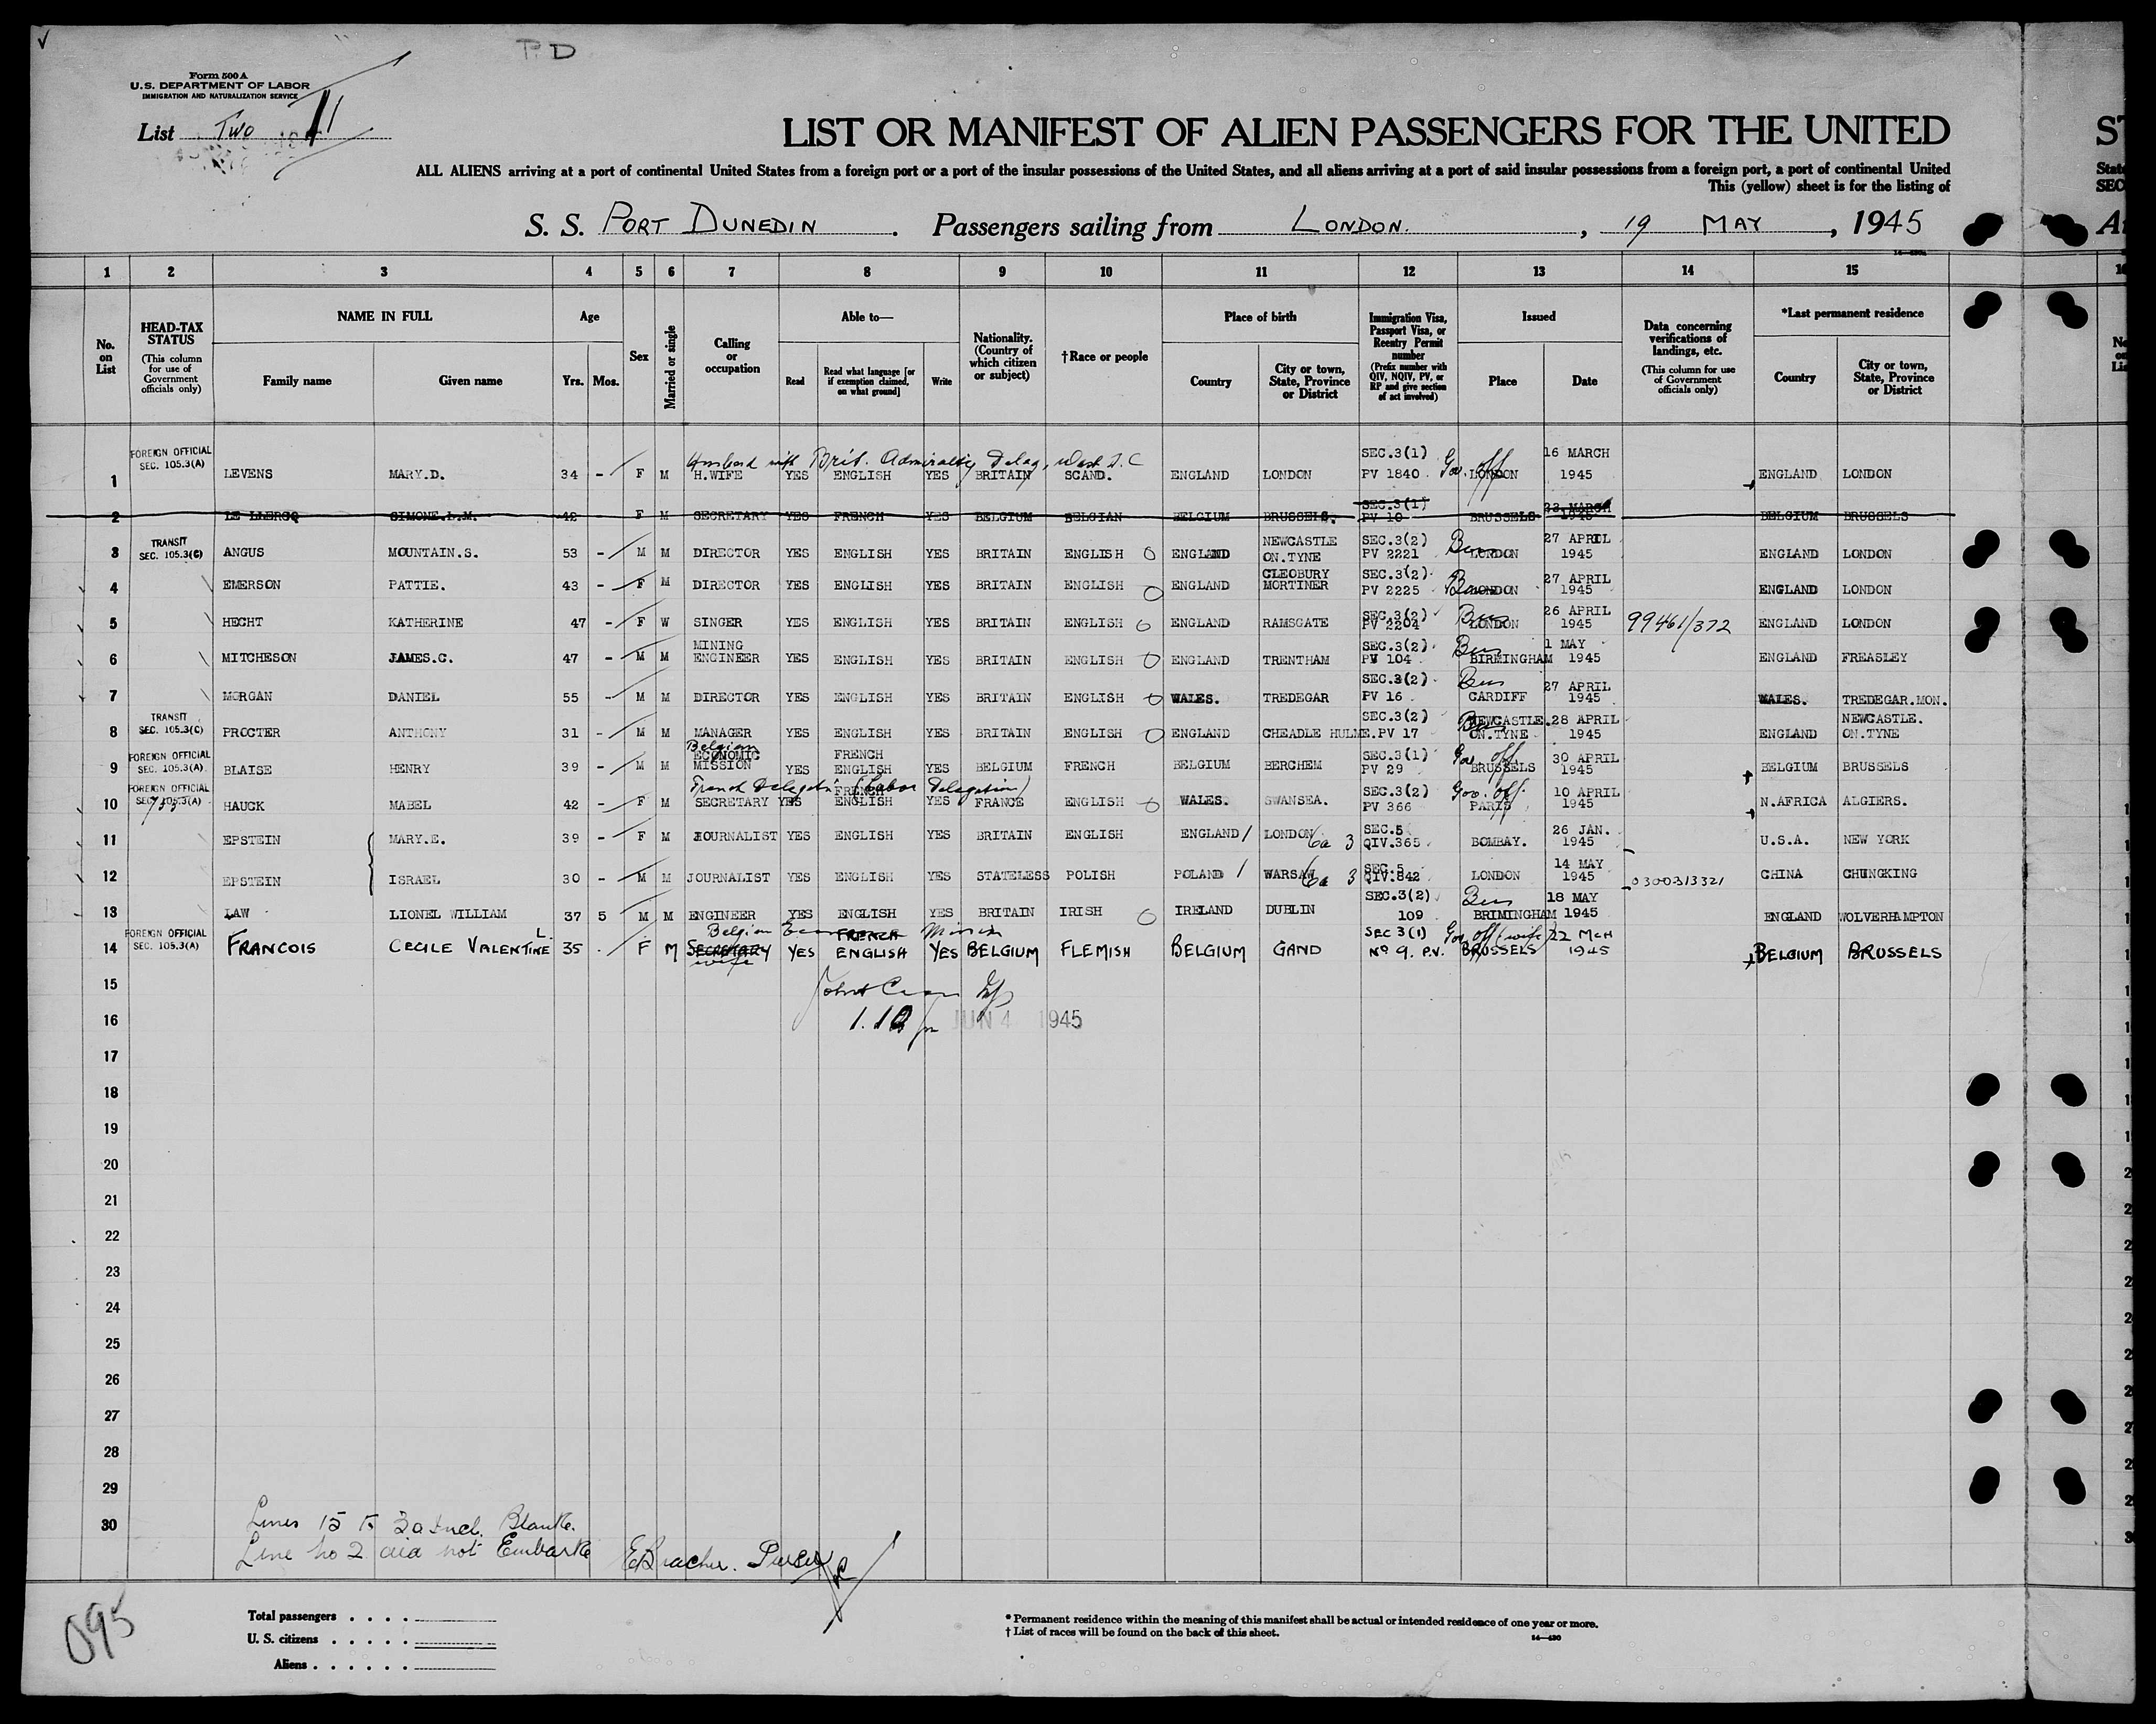 P.D
Form 500 A
U.S. DEPARTMENT OF LABOR
IMMIGRATION AND NATURALIZATION SERVICE
List Two 11
LIST OR MANIFEST OF ALIEN PASSENGERS FOR THE UNITED
ALL ALIENS arriving at a port of continental United States from a foreign port or a port of the insular possessions of the United States, and all aliens arriving at a port of said insular possessions from a foreign port, a port of continental United
This (yellow) sheet is for the listing of
S. S. PORT DUNEDIN. Passengers sailing from LONDON., 19 MAY, 1945
1 2 3 4 5 6 7 8 9 10 11 12 13 14 15
No. on List
HEAD-TAX STATUS (This column for use of Government officials only)
NAME IN FULL Family name Given name
Age Yrs. Mos.
Sex
Married or single
Calling or occupation
Able to— Read Read what language [or if exemption claimed, on what ground] Write
Nationality. (Country of which citizen or subject)
†Race or people
Place of birth Country City or town, State, Province or District
Immigration Visa, Passport Visa, or Reentry Permit number (Prefix number with QIV, NQIV, PV, or RP and give section of act involved)
Issued Place Date
Data concerning verifications of landings, etc. (This column for use of Government officials only)
*Last permanent residence Country City or town, State, Province or District
Husband with Brit. Admiralty Deleg, Wash D.C
1 FOREIGN OFFICIAL SEC. 105.3(A) LEVENS MARY.D. 34 - F M H.WIFE YES ENGLISH YES BRITAIN SCAND. ENGLAND LONDON SEC.3(1) PV 1840 Gov. off LONDON 16 MARCH 1945 ENGLAND LONDON
2 LE LLERCQ SIMONE.L.M. 42 F M SECRETARY YES FRENCH YES BELGIUM BELGIAN BELGIUM BRUSSELS. SEC.3(1) PV 10 BRUSSELS 23 MARCH 1945 BELGIUM BRUSSELS
3 TRANSIT SEC. 105.3(C) ANGUS MOUNTAIN.S. 53 - M M DIRECTOR YES ENGLISH YES BRITAIN ENGLISH ENGLAND NEWCASTLE ON.TYNE SEC.3(2) PV 2221 Bus LONDON 27 APRIL 1945 ENGLAND LONDON
4 EMERSON PATTIE. 43 - F M DIRECTOR YES ENGLISH YES BRITAIN ENGLISH ENGLAND CLEOBURY MORTINER SEC.3(2) PV 2225 Bus LONDON 27 APRIL 1945 ENGLAND LONDON
5 HECHT KATHERINE 47 - F W SINGER YES ENGLISH YES BRITAIN ENGLISH ENGLAND RAMSGATE SEC.3(2) PV 2204 Bus LONDON 26 APRIL 1945 99461/372 ENGLAND LONDON
6 MITCHESON JAMES.C. 47 - M M MINING ENGINEER YES ENGLISH YES BRITAIN ENGLISH ENGLAND TRENTHAM SEC.3(2) PV 104 Bus BIRMINGHAM 1 MAY 1945 ENGLAND FREASLEY
7 MORGAN DANIEL 55 - M M DIRECTOR YES ENGLISH YES BRITAIN ENGLISH WALES. TREDEGAR SEC.3(2) PV 16 Bus CARDIFF 27 APRIL 1945 WALES. TREDEGAR.MON.
8 TRANSIT SEC. 105.3(C) PROCTER ANTHONY 31 - M M MANAGER YES ENGLISH YES BRITAIN ENGLISH ENGLAND CHEADLE HULME. SEC.3(2) PV 17 Bus NEWCASTLE. ON.TYNE 28 APRIL 1945 ENGLAND NEWCASTLE. ON.TYNE
9 FOREIGN OFFICIAL SEC. 105.3(A) BLAISE HENRY 39 - M M Belgian ECONOMIC MISSION YES FRENCH ENGLISH YES BELGIUM FRENCH BELGIUM BERCHEM SEC.3(1) PV 29 Gov off BRUSSELS 30 APRIL 1945 BELGIUM BRUSSELS
French Delegation (Labor Delegation)
10 FOREIGN OFFICIAL SEC. 105.3(A) HAUCK MABEL 42 - F M SECRETARY YES FRENCH ENGLISH YES FRANCE ENGLISH WALES. SWANSEA. SEC.3(2) PV 366 Gov. off. PARIS 10 APRIL 1945 N.AFRICA ALGIERS.
11 EPSTEIN MARY.E. 39 - F M JOURNALIST YES ENGLISH YES BRITAIN ENGLISH ENGLAND LONDON 6a 3 SEC.5 QIV.365 BOMBAY. 26 JAN. 1945 U.S.A. NEW YORK
12 EPSTEIN ISRAEL 30 - M M JOURNALIST YES ENGLISH YES STATELESS POLISH POLAND WARSAW 6a 3 SEC.5 QIV.842 LONDON 14 MAY 1945 0300313321 CHINA CHUNGKING
13 LAW LIONEL WILLIAM 37 5 M M ENGINEER YES ENGLISH YES BRITAIN IRISH IRELAND DUBLIN SEC.3(2) 109 Bus BRIMINGHAM 18 MAY 1945 ENGLAND WOLVERHAMPTON
14 FOREIGN OFFICIAL SEC. 105.3(A) FRANCOIS CECILE VALENTINE L. 35 F M Belgian Mission SECRETARY wife YES FRENCH ENGLISH YES BELGIUM FLEMISH BELGIUM GAND SEC 3(1) No 9. P.V. Gov off (wife) BRUSSELS 22 MCH 1945 BELGIUM BRUSSELS
15
16 1.10 pm JUN 4 1945
17
18
19
20
21
22
23
24
25
26
27
28
29
30
Lines 15 to 30 Incl. Blank.
Line No 2 did not Embark
EBracher. Purser
095
Total passengers . . . .
U. S. citizens . . . . .
Aliens . . . . . .
* Permanent residence within the meaning of this manifest shall be actual or intended residence of one year or more.
† List of races will be found on the back of this sheet.